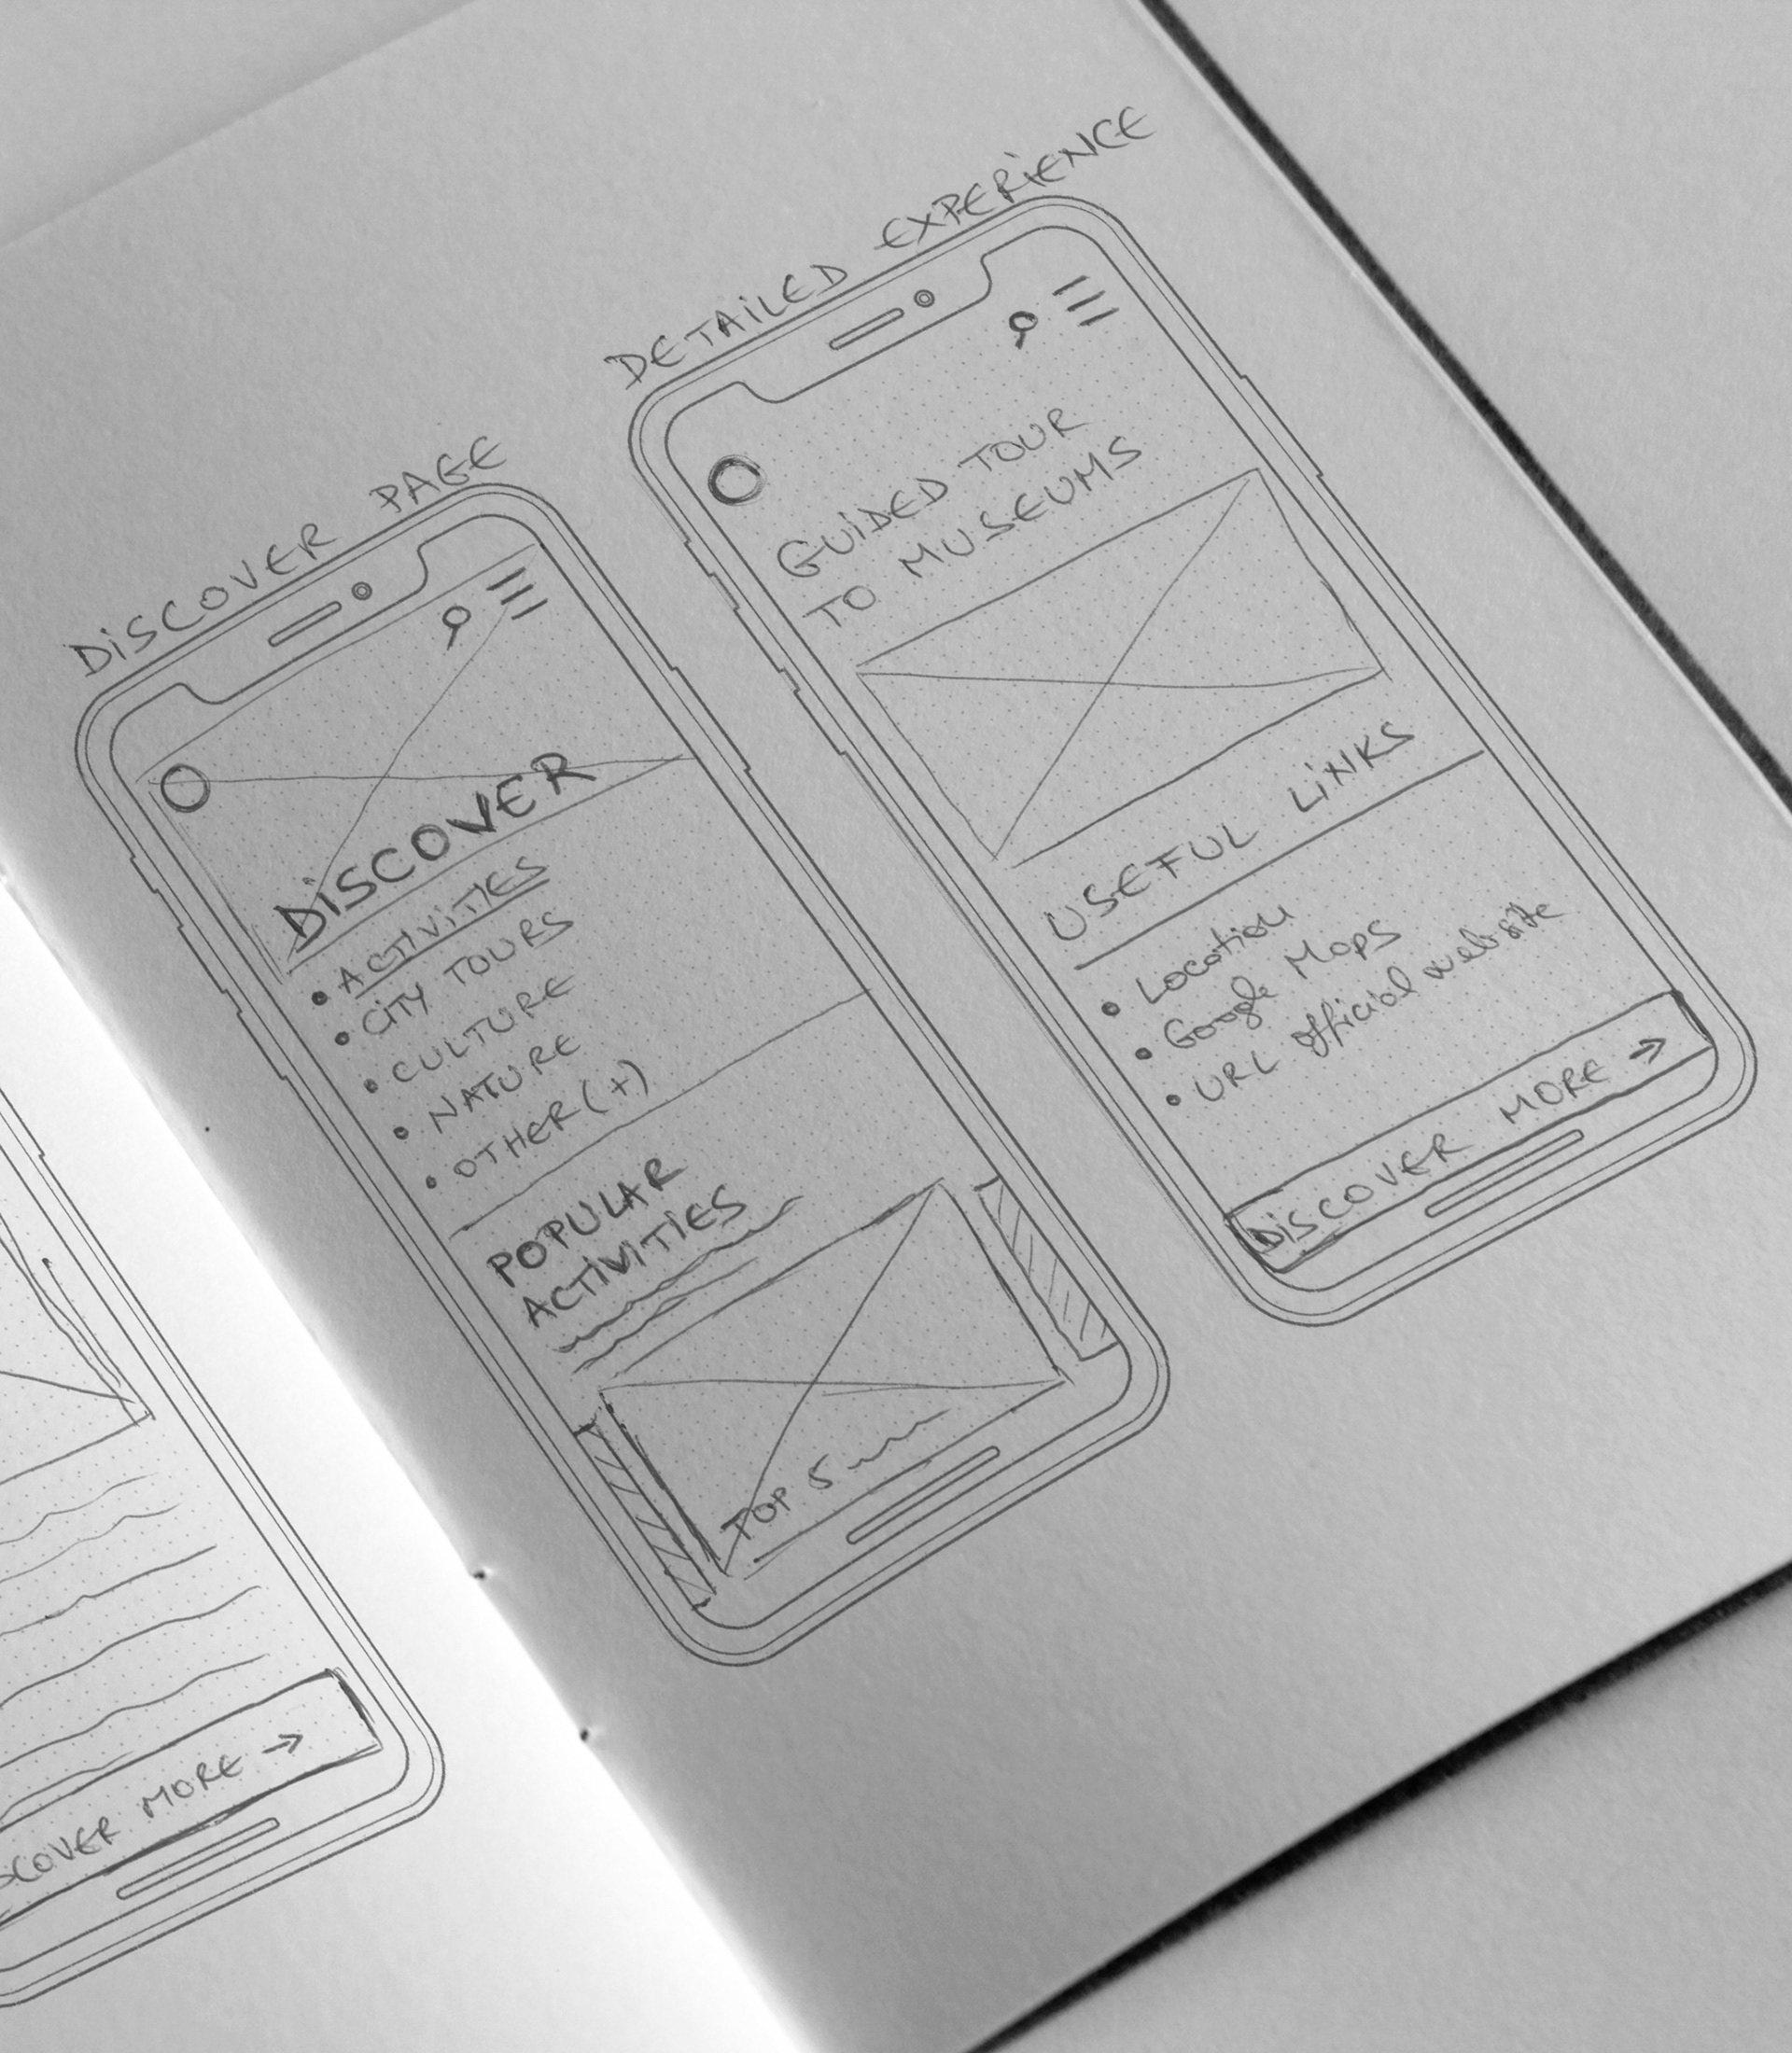 DISCOVER PAGE
DISCOVER
• ACTIVITIES
• CITY TOURS
• CULTURE
• NATURE
• OTHER (+)
POPULAR
ACTIVITIES
TOP 5
DETAILED EXPERIENCE
GUIDED TOUR
TO MUSEUMS
USEFUL LINKS
• Location
• Google Maps
• URL official website
DISCOVER MORE →
SCOVER MORE →